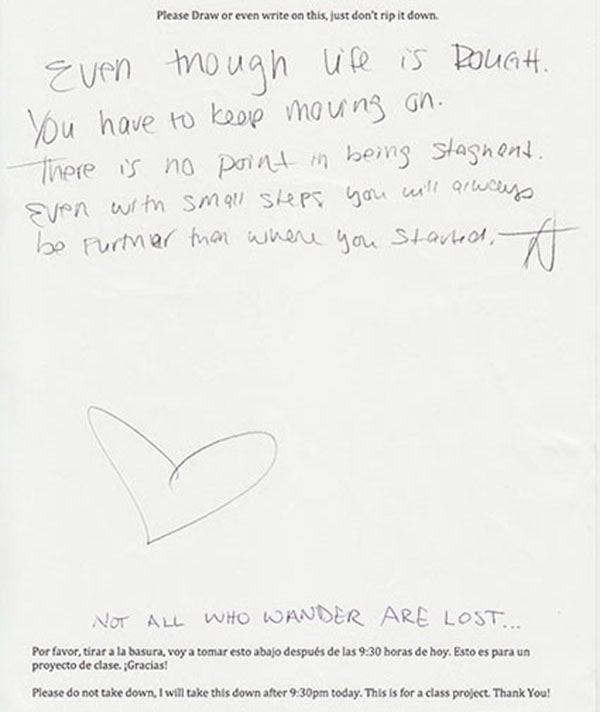 Please Draw or even write on this, just don't rip it down.
Even though life is ROUGH.
You have to keep moving on.
There is no point in being stagnent.
Even with small steps you will always
be Further than where you started.
NOT ALL WHO WANDER ARE LOST...
Por favor, tirar a la basura, voy a tomar esto abajo después de las 9:30 horas de hoy. Esto es para un
proyecto de clase. ¡Gracias!
Please do not take down, I will take this down after 9:30pm today. This is for a class project. Thank You!